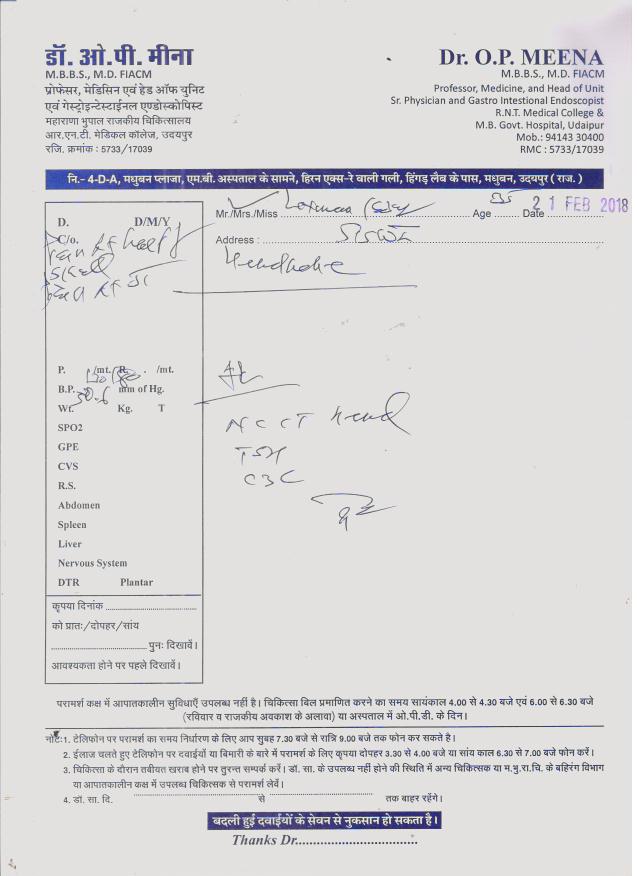 डॉ. ओ.पी. मीना
M.B.B.S., M.D. FIACM
प्रोफेसर, मेडिसिन एवं हेड ऑफ युनिट
एवं गेस्ट्रोइन्टेस्टाईनल एण्डोस्कोपिस्ट
महाराणा भुपाल राजकीय चिकित्सालय
आर.एन.टी. मेडिकल कॉलेज, उदयपुर
रजि. क्रमांक : 5733/17039
Dr. O.P. MEENA
M.B.B.S., M.D. FIACM
Professor, Medicine, and Head of Unit
Sr. Physician and Gastro Intestional Endoscopist
R.N.T. Medical College &
M.B. Govt. Hospital, Udaipur
Mob.: 94143 30400
RMC : 5733/17039
नि.- 4-D-A, मधुबन प्लाजा, एम.बी. अस्पताल के सामने, हिरन एक्स-रे वाली गली, हिंगड़ लैब के पास, मधुबन, उदयपुर ( राज. )
Mr./Mrs./Miss Age Date 21 FEB 2018
Address :
Headache
D. D/M/Y
C/o.
P. /mt. R. /mt.
B.P. mm of Hg.
Wt. Kg. T
SPO2
GPE
CVS
R.S.
Abdomen
Spleen
Liver
Nervous System
DTR Plantar
NCCT Head
TSH
CBC
कृपया दिनांक
को प्रातः/दोपहर/सांय
पुनः दिखावें।
आवश्यकता होने पर पहले दिखावें।
परामर्श कक्ष में आपातकालीन सुविधाएँ उपलब्ध नहीं है। चिकित्सा बिल प्रमाणित करने का समय सायंकाल 4.00 से 4.30 बजे एवं 6.00 से 6.30 बजे
(रविवार व राजकीय अवकाश के अलावा) या अस्पताल में ओ.पी.डी. के दिन।
नोट:1. टेलिफोन पर परामर्श का समय निर्धारण के लिए आप सुबह 7.30 बजे से रात्रि 9.00 बजे तक फोन कर सकते है।
2. ईलाज चलते हुए टेलीफोन पर दवाईयों या बिमारी के बारे में परामर्श के लिए कृपया दोपहर 3.30 से 4.00 बजे या सांय काल 6.30 से 7.00 बजे फोन करें।
3. चिकित्सा के दौरान तबीयत खराब होने पर तुरन्त सम्पर्क करें। डॉ. सा. के उपलब्ध नहीं होने की स्थिति में अन्य चिकित्सक या म.भु.रा.चि. के बहिरंग विभाग
या आपातकालीन कक्ष में उपलब्ध चिकित्सक से परामर्श लेवें।
4. डॉ. सा. दि. से तक बाहर रहेंगे।
बदली हुई दवाईयों के सेवन से नुकसान हो सकता है।
Thanks Dr.